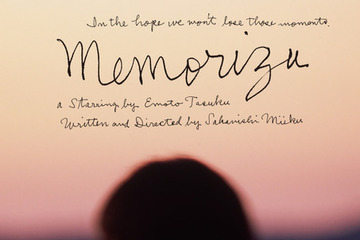 In the hope we won't lose those moments.
Memorizu
a Starring by Emoto Tasuku
Written and Directed by Sakanishi Miiku